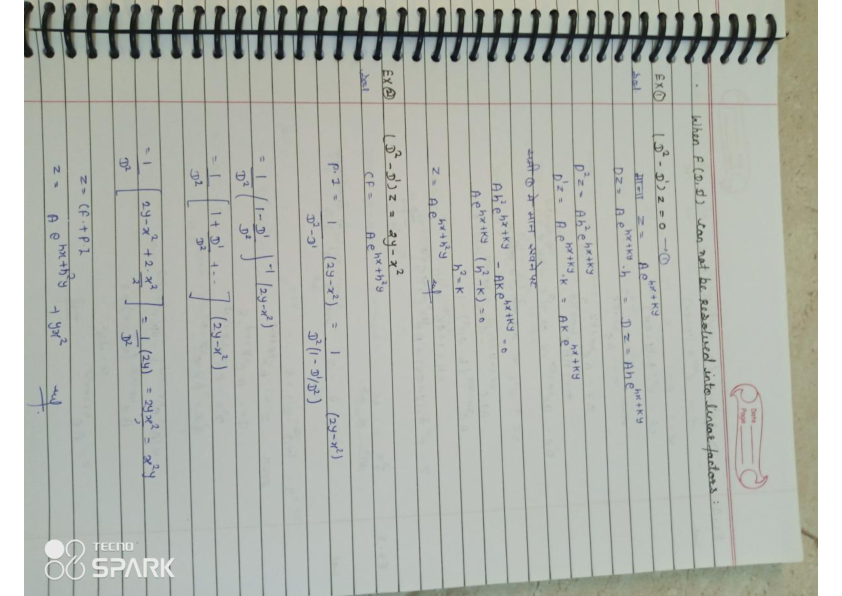 Date
Page
When F(D, D') can not be resolved into linear factors :
Ex ① - (D² - D') z = 0 — ①
Sol माना z = A e^{hx+ky}
Dz = A e^{hx+ky}.h = Dz = Ah e^{hx+ky}
D²z = Ah² e^{hx+ky}
D'z = A e^{hx+ky}.k = AK e^{hx+ky}
समी ① में मान रखने पर
Ah² e^{hx+ky} - AK e^{hx+ky} = 0
A e^{hx+ky} (h² - k) = 0
h² = k
z = A e^{hx+h²y}
Ex ② (D² - D') z = 2y - x²
Sol CF = A e^{hx+h²y}
P.I = 1/(D² - D') (2y - x²) = 1/(D²(1 - D'/D²)) (2y - x²)
= 1/D² [1 - D'/D²]^{-1} (2y - x²)
= 1/D² [1 + D'/D² + ...] (2y - x²)
= 1/D² [2y - x² + 2·x²/2] = 1/D² (2y) = 2yx²/2 = x²y
z = CF + PI
z = A e^{hx+h²y} + yx²
TECNO
SPARK